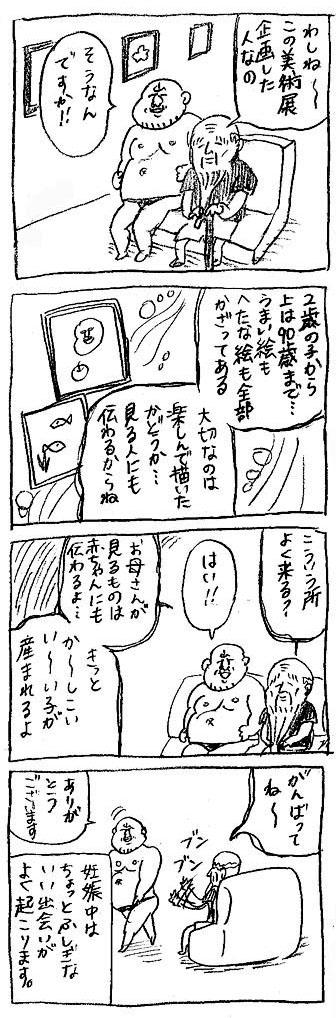 わしね〜
この美術展
企画した
人なの
そうなん
ですか!!
2歳の子から
上は90歳まで…
うまい絵も
へたな絵も全部
かざってある
大切なのは
楽しんで描いた
かどうか…
見る人にも
伝わるからね
こういう所
よく来る?
はい!!
お母さんが
見るものは
赤ちゃんにも
伝わるよ…
きっと
か〜しこい
い〜い子が
産まれるよ
がんばって
ね〜
ブン
ブン
ありが
とう
ございます
妊娠中は
ちょっとふしぎな
いい出会いが
よく起こります。